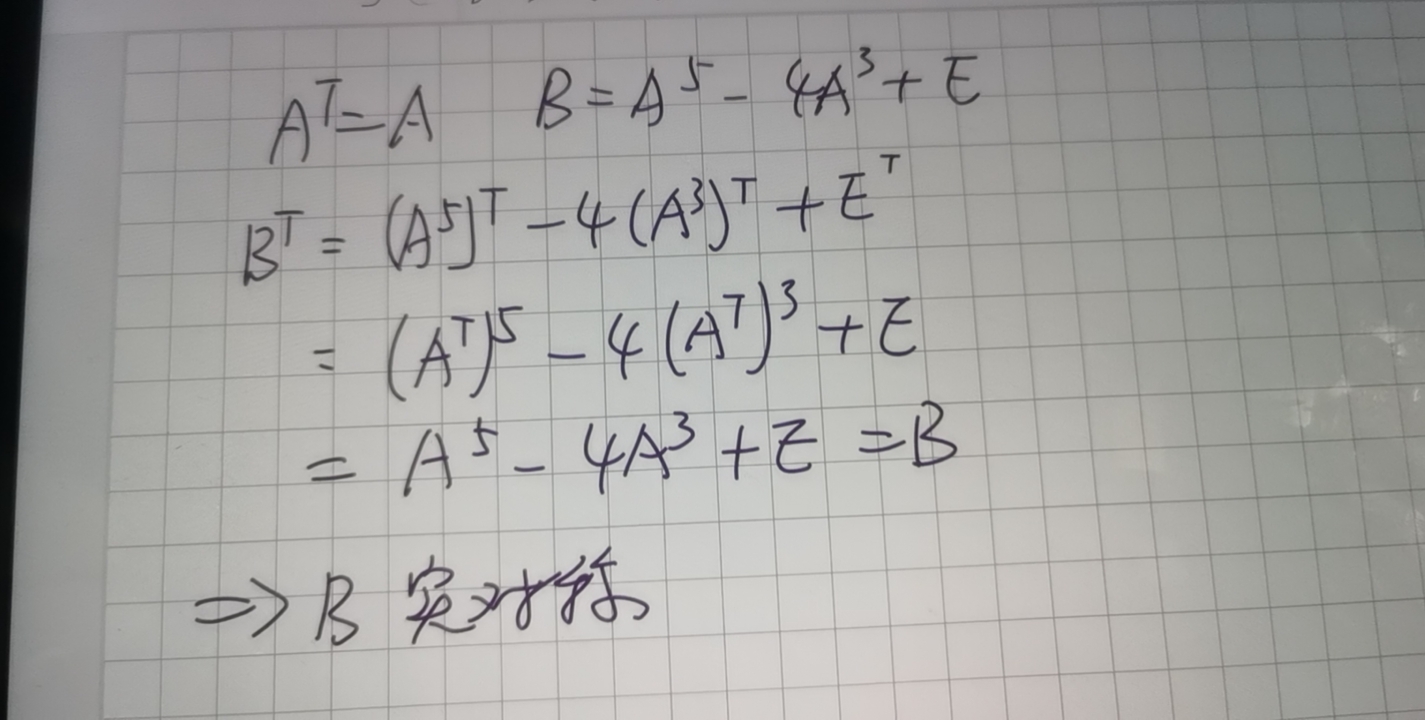 Aᵀ=A B=A⁵-4A³+E
Bᵀ=(A⁵)ᵀ-4(A³)ᵀ+Eᵀ
=(Aᵀ)⁵-4(Aᵀ)³+E
=A⁵-4A³+E=B
⇒B实对称